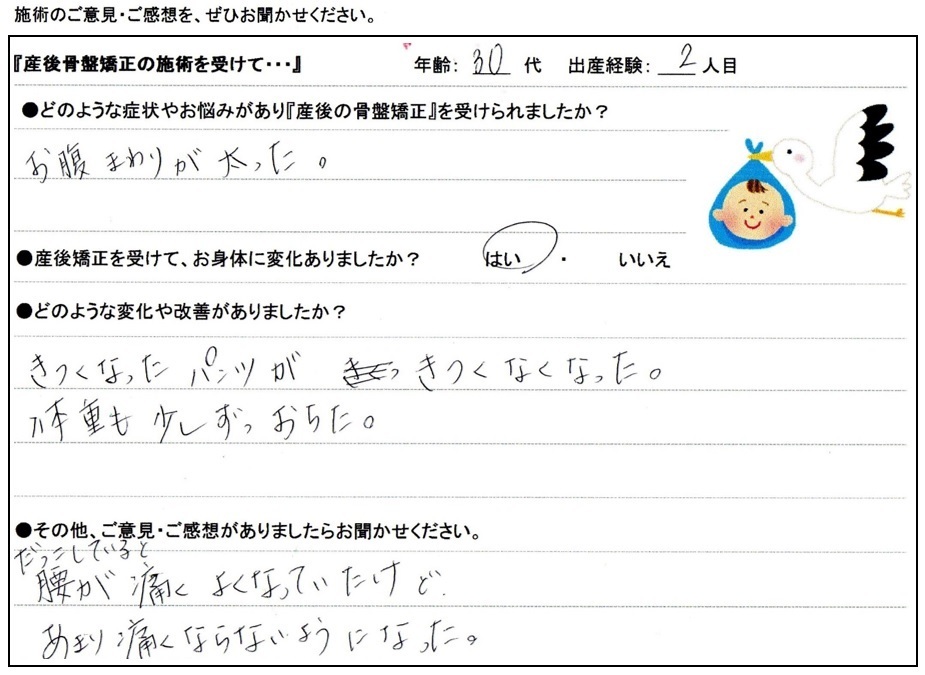 施術のご意見・ご感想を、ぜひお聞かせください。
『産後骨盤矯正の施術を受けて・・・』 年齢: 30 代 出産経験: 2 人目
●どのような症状やお悩みがあり『産後の骨盤矯正』を受けられましたか？
お腹まわりが太った。
●産後矯正を受けて、お身体に変化ありましたか？ はい ・ いいえ
●どのような変化や改善がありましたか？
きつくなったパンツが きつくなくなった。
体重も少しずつおちた。
●その他、ご意見・ご感想がありましたらお聞かせください。
だっこしていると
腰が痛くよくなっていたけど
あまり痛くならないようになった。